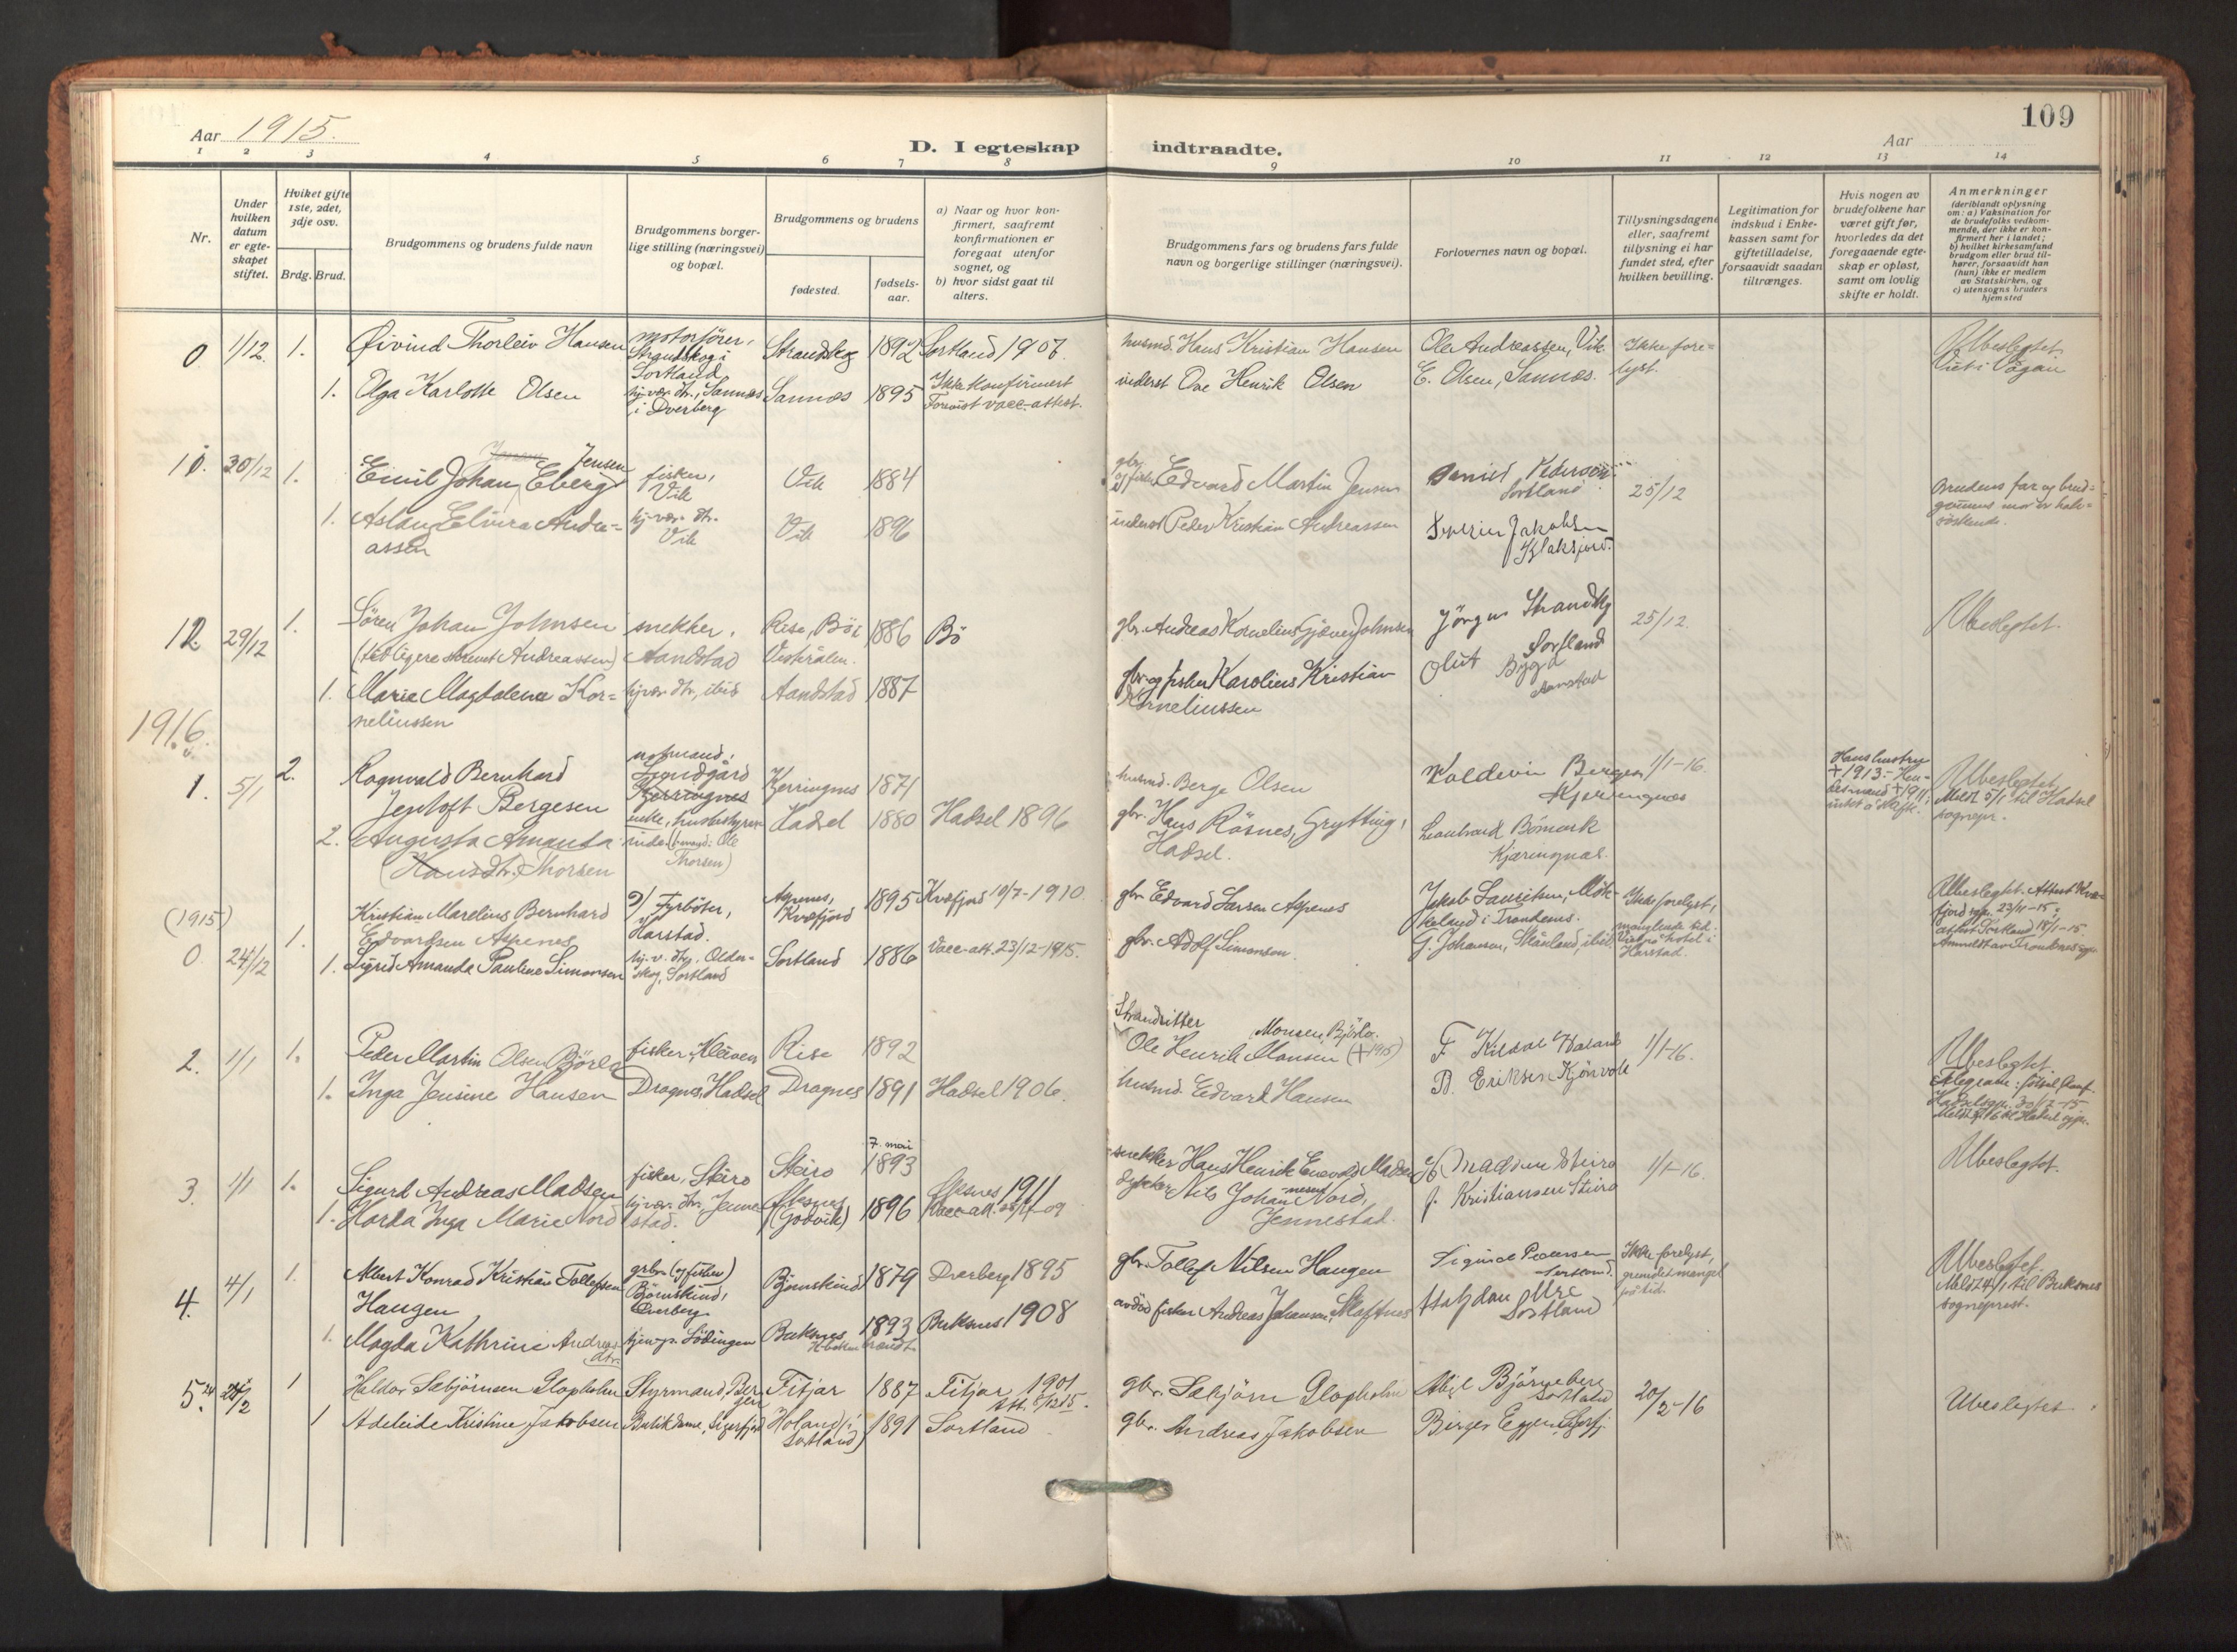 109
Aar 1915.
D. I egteskap indtraadte.
Aar
1 2 3 4 5 6 7 8 9 10 11 12 13 14
Nr.
Under hvilken datum er egteskapet stiftet.
Hviket gifte 1ste, 2det, 3dje osv.
Brdg. Brud.
Brudgommens og brudens fulde navn
Brudgommens borgerlige stilling (næringsvei) og bopæl.
Brudgommens og brudens
fødested.
fødselsaar.
a) Naar og hvor konfirmert, saafremt konfirmationen er foregaat utenfor sognet, og
b) hvor sidst gaat til alters.
Brudgommens fars og brudens fars fulde navn og borgerlige stillinger (næringsvei).
Forlovernes navn og bopæl.
Tillysningsdagene eller, saafremt tillysning ei har fundet sted, efter hvilken bevilling.
Legitimation for indskud i Enkekassen samt for giftetilladelse, forsaavidt saadan tiltrænges.
Hvis nogen av brudefolkene har været gift før, hvorledes da det foregaaende egteskap er opløst, samt om lovlig skifte er holdt.
Anmerkninger (deriblandt oplysning om: a) Vaksination for de brudefolks vedkommende, der ikke er konfirmert her i landet; b) hvilket kirkesamfund brudgom eller brud tilhører, forsaavidt han (hun) ikke er medlem av Statskirken, og c) utensogns bruders hjemsted
0 1/12. 1. Øivind Thorleiv Hansen motorfører, Strandskog i Sortland Strandskog 1892 Sortland 1907. husmd. Hans Kristian Hansen Ole Andreassen, Vik Ikke forelyst. Ubeslegtet. Viet i Vågan
1. Olga Karlotte Olsen hj.vær. dtr., Sannæs i Dverberg Sannæs 1895 Ikke konfirmert Forevist vacc.attest. inderst Ove Henrik Olsen E. Olsen, Sannæs.
11. 30/12 1. Emil Johan Eberg Jensen fisker, Vik Vik 1884 gbr. og fisker Edvard Martin Jensen Daniel Pedersen Sortland 25/12 Brudens far og brudgommens mor er halvsøskende.
1. Aslaug Elvira Andreassen hj.vær. dtr. Vik Vik 1896 inderst Peder Kristian Andreassen Severin Jakobsen Blaksjord.
12 29/12 1. Sören Johan Johnsen (tidligere skrevet Andreassen) snekker, Aandstad Rise, Bö i Vesterålen. 1886 Bö gbr. Andreas Kornelius Gjæver Johnsen Jörgen Strandskg Sortland 25/12. Ubeslegtet.
1. Marie Magdalene Korneliussen hj.vær. dtr, ibid Aandstad 1887 gbr. og fisker Karolius Kristian Korneliussen Oluf Bygd Aanstad
1916.
1. 5/1 2. Ragnvald Bernhard Jentoft Bergesen notmand, Kjerringnes Kjerringnes 1871 husmd. Berge Olsen Koldevin Bergesen Kjerringnes 1/1-16. Hans hustru + 1913. - Hendes mand + 1911, intet Ubeslegtet Meldt 5/1 til Hadsel sognepr.
2. Augusta Amanda (Hansdtr.) Thorsen enke, husbestyrerinde (hennes md: Ole Thorsen) Hadsel 1880 Hadsel 1896 gbr. Hans Rösnes, Grytting, Hadsel. Leonhard Bömark Kjæringnæs.
(1915)
0. 24/12 1. Kristian Marelius Bernhard Edvardsen Aspenes Fyrböter, Harstad. Aspenes, Kvæfjord 1895 Kvæfjord 10/7-1910. gbr. Edvard Larsen Aspenes Jakob Lauritsen, Mökkeland i Trondenes. Ikke forelyst, manglende tid. Viet på hotel i Harstad. Ubeslegtet. Attest Kvæfjord sgn. 23/11-15,
1. Sigrid Amanda Pauline Simonsen hj.v. dtr, Olderskog, Sortland Sortland 1886 Vacc.att. 23/12-1915. gbr. Adolf Simonsen. G. Johansen, Skånland, ibid.
2. 1/1 1. Peder Martin Olsen Björlo fisker, Kleiven Rise 1892 Strandsitter Ole Henrik Monsen (+1915) Monsen, Björlo. 1/1-16. Ubeslegtet.
1. Inga Jensine Hansen Dragnes, Hadsel Dragnes 1891 Hadsel 1906. husmd. Edvard Hansen B. Eriksen Kjörvole
3. 1/1 1. Sigurd Andreas Madsen fisker, Steiro Steiro 7. mai 1893 snekker Hans Henrik Enevold Madsen H Madsen Steiro 1/1-16. Ubeslegtet.
1. Harda Inga Marie Nord hj.vær. dtr, Jennestad. Öksnes (Godvik) 1896 Öksnes 1911 Vacc-att. Nils Johan Nord, Jennestad. J. Kristiansen Steiro
4. 4/1 1. Albert Konrad Kristian Tollefsen Haugen gbr. (og fisker) Bjørnskind, Dverberg. Bjørnskind 1879 Dverberg 1895 gbr. Tollef Nilsen Haugen Sigurd Pedersen Sortland. Ikke forelyst, grundet mangel på tid. Ubeslegtet. Meldt 4/1 til Buksnes sogneprest.
1. Magda Kathrine Andreasdtr. tjen.p. Lödingen Buksnes 1893 Buksnes 1908 avdöd fisker Andreas Johansen, Skaftnes Halfdan Ure Sortland
5. 24/2 1 Haldor Sæbjörnsen Glopholm Styrmand, Bergen Fitjar 1887 Fitjar 1901 Att. 8/12 15. gbr. Sæbjörn Glopholm Abigl Björneberg Sortland 20/2-16 Ubeslegtet.
1 Adeleide Kristine Jakobsen Butikdame, Sigerfjord Holand (i Sortland) 1891 Sortland gbr. Andreas Jakobsen Birger Eggen, Sigerfj.